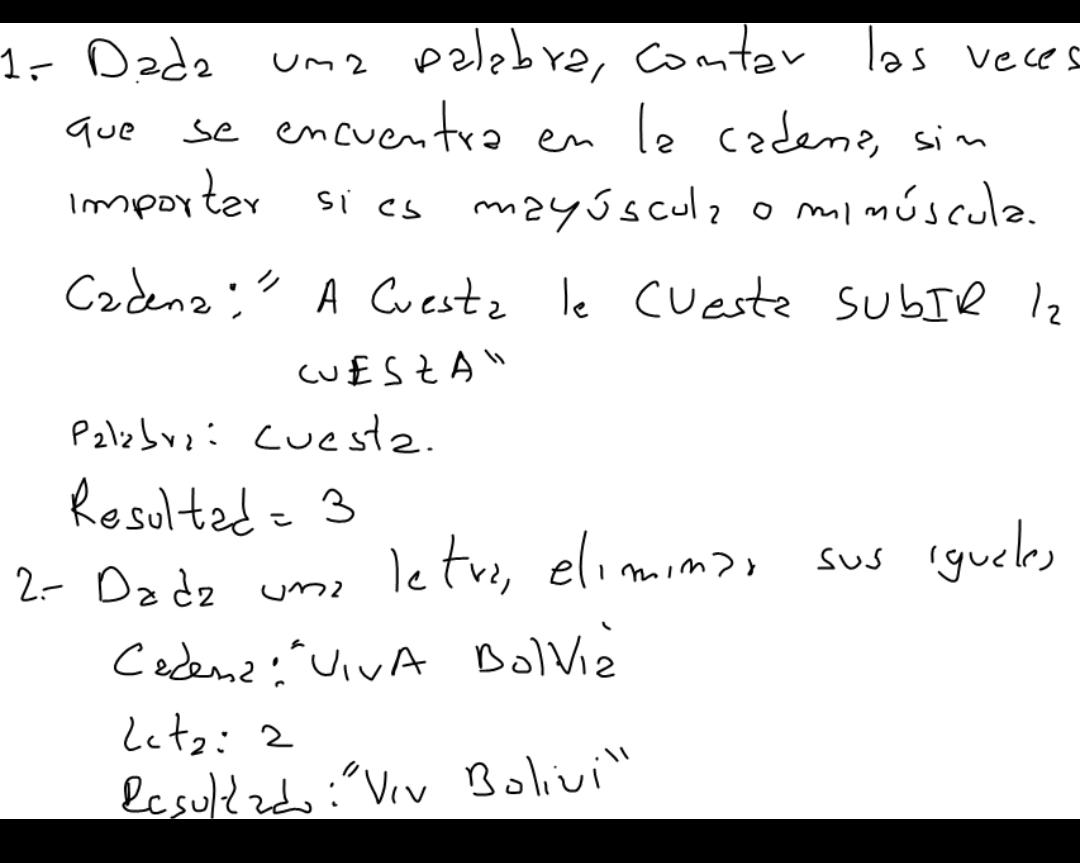 1.- Dada una palabra, contar las veces
que se encuentra en la cadena, sin
importar si es mayúscula o minúscula.
Cadena: "A Cuesta le CUesta SUbIR la
cUEStA"
Palabra: cuesta.
Resultad = 3
2.- Dada una letra, eliminar sus iguales
Cadena: "VivA BolVia
Leta: a
Resultado: "Viv Bolivi"